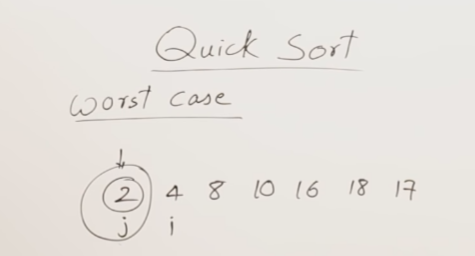 Quick Sort
Worst case
2 4 8 10 16 18 17
j i